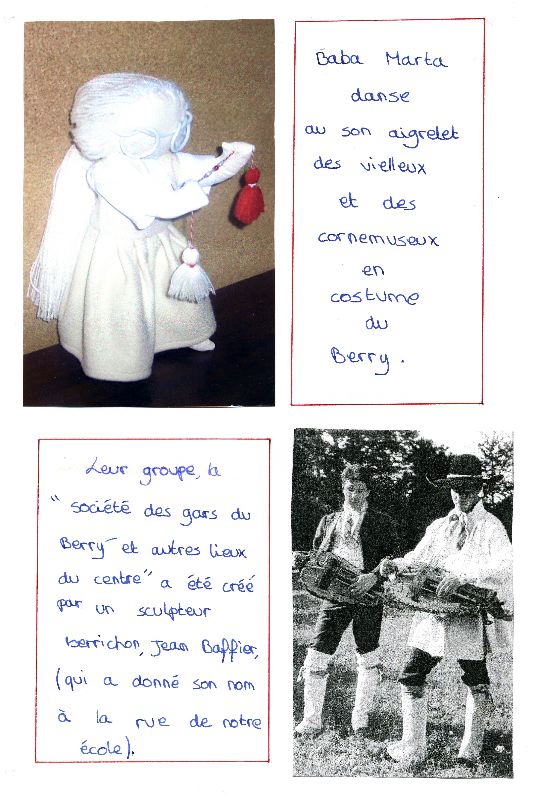 Baba Marta
danse
au son aigrelet
des vielleux
et des
cornemuseux
en
costume
du
Berry.
Leur groupe, la
"société des gars du
Berry et autres lieux
du centre" a été créé
par un sculpteur
berrichon, Jean Baffier,
(qui a donné son nom
à la rue de notre
école).